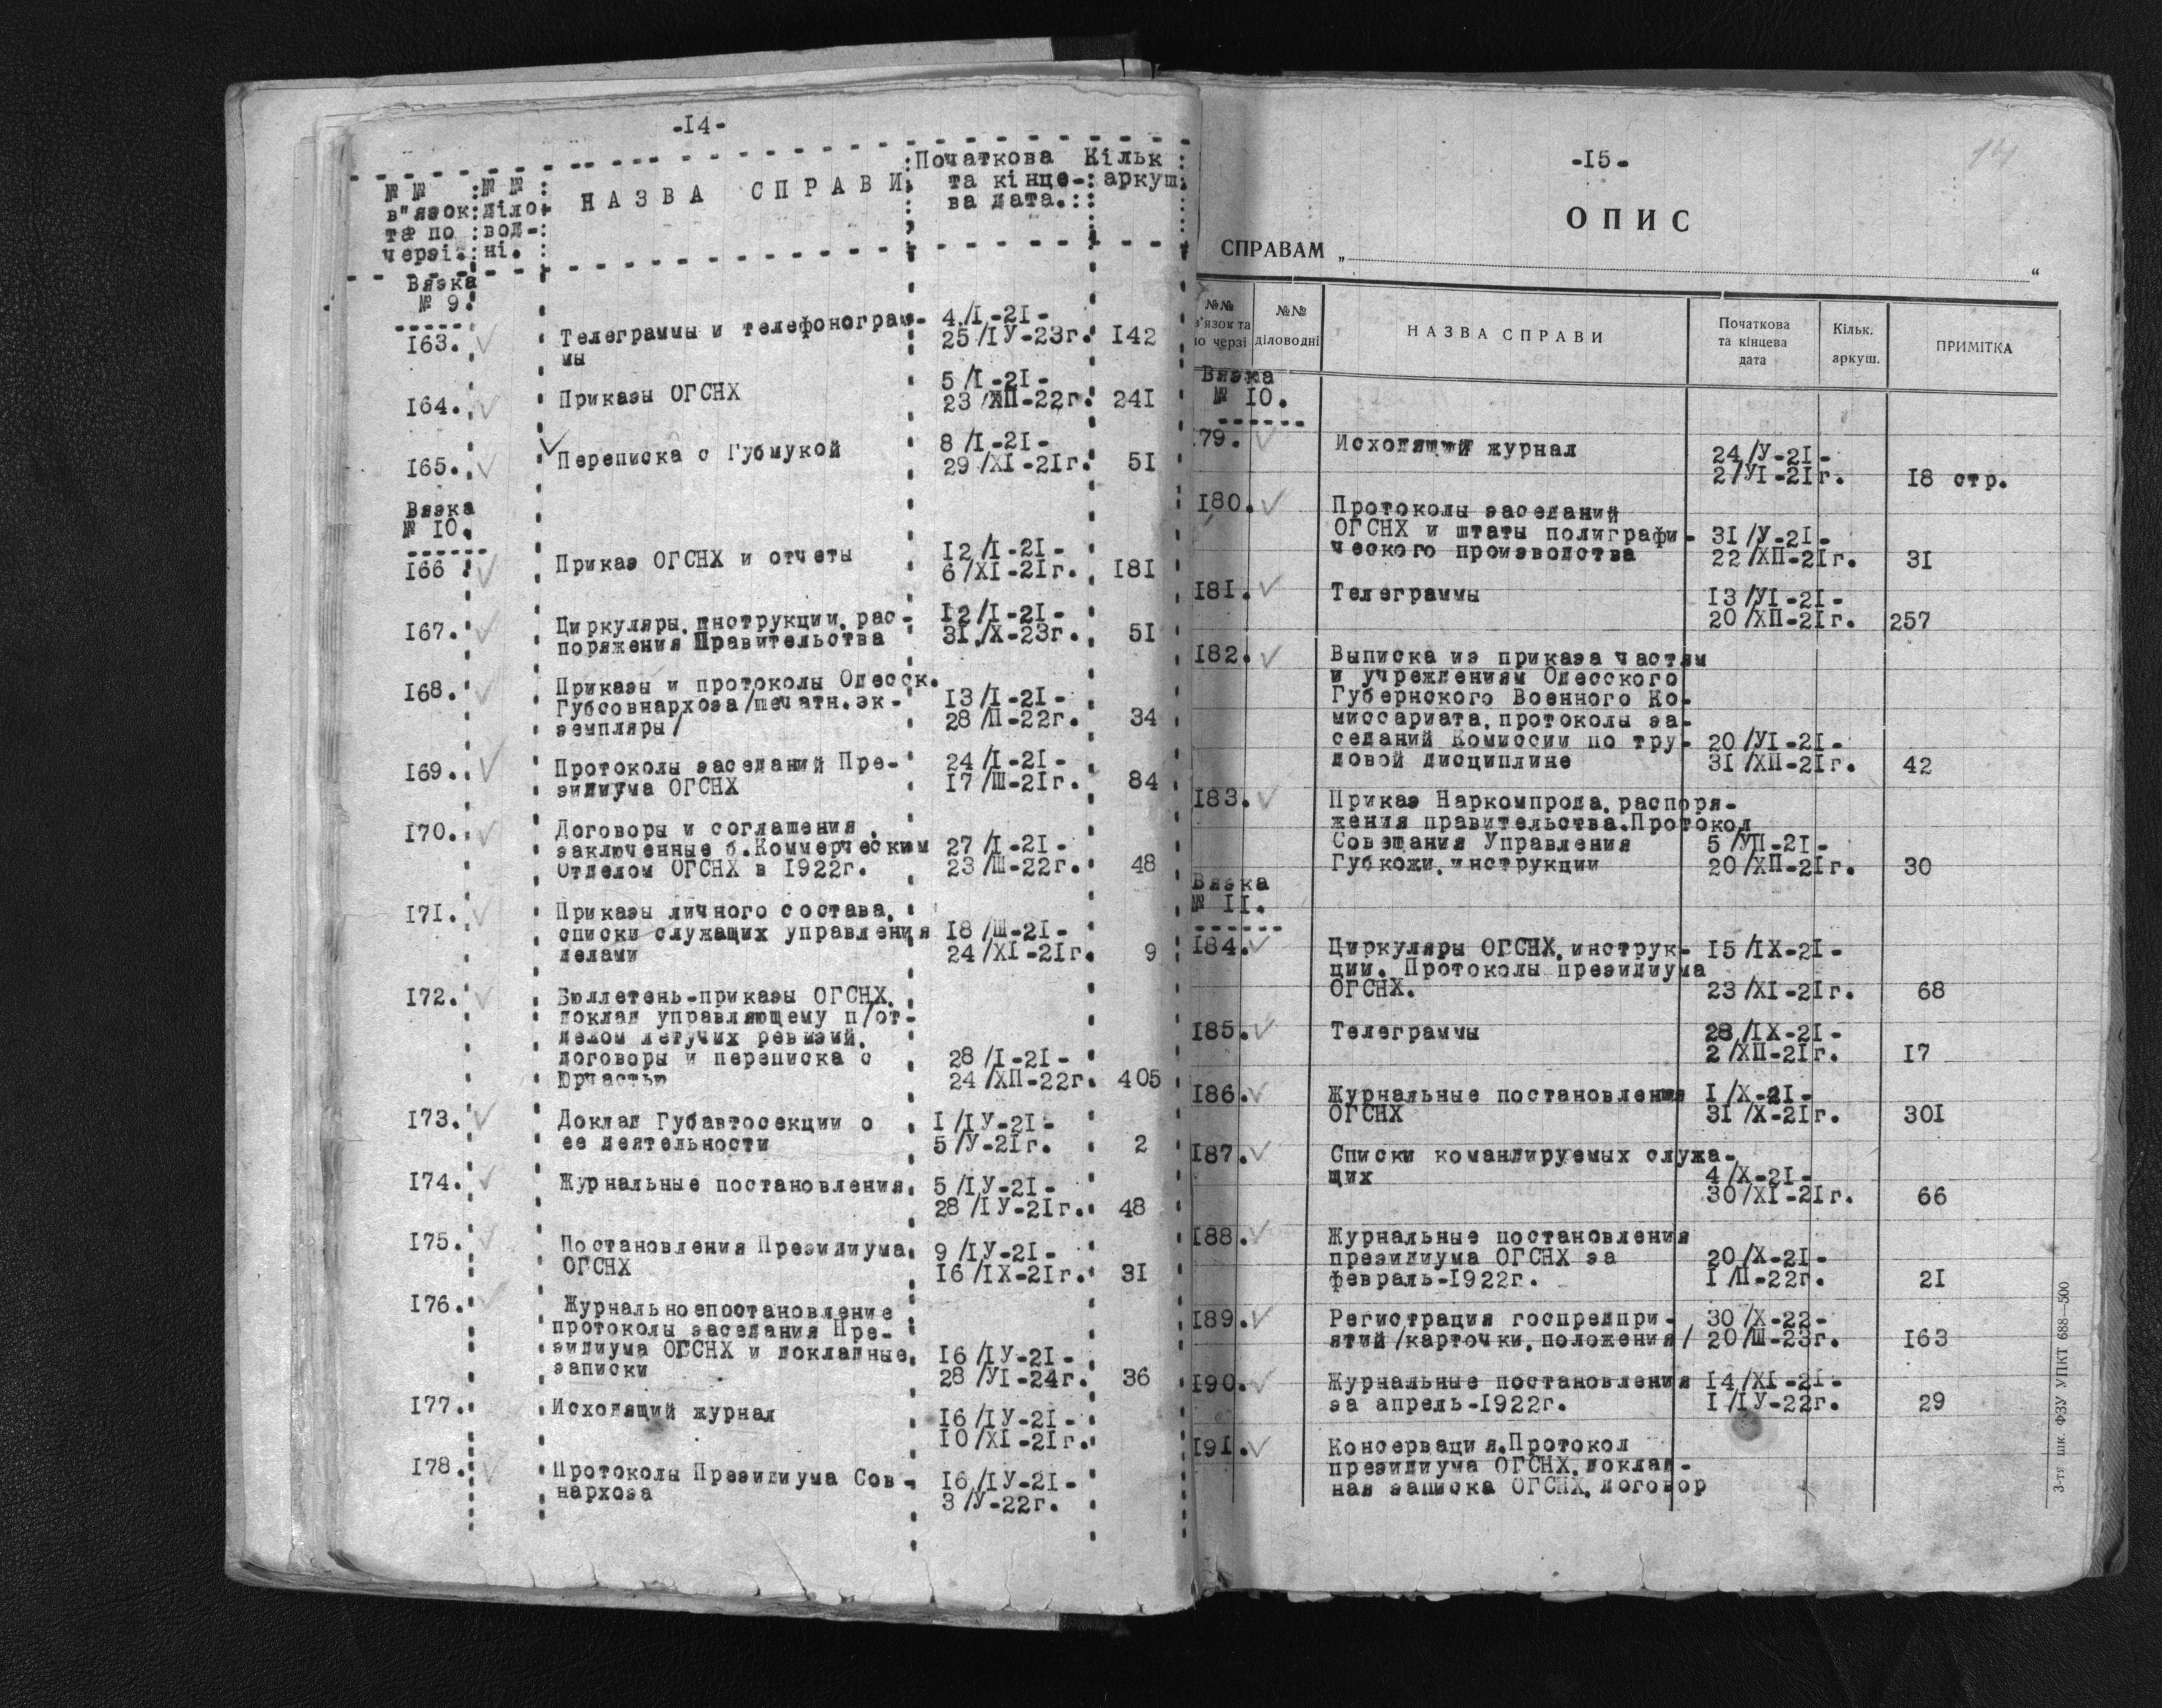 -14-
№№ в"язок та по черзі. №№ діло- вод- ні. НАЗВА СПРАВИ Початкова та кінце- ва дата. Кільк аркуш.
Вязка
№ 9.
163. Телеграммы и телефонограм- 4/I-21-
мы 25/IУ-23г. 142
164. Приказы ОГСНХ 5/I-21-
23/ХП-22г. 241
165. Переписка с Губмукой 8/I-21-
29/XI-21г. 51
Вязка
№ 10.
166 Приказ ОГСНХ и отчеты 12/I-21-
6/XI-21г. 181
167. Циркуляры, инструкции, рас- 12/I-21-
поряжения Правительства 31/X-23г. 51
168. Приказы и протоколы Одесск.
Губсовнархоза/печатн.эк- 13/I-21-
земпляры/ 28/П-22г. 34
169. Протоколы заседаний Пре- 24/I-21-
зидиума ОГСНХ 17/Ш-21г. 84
170. Договоры и соглашения,
заключенные б.Коммерческим 27/I-21-
Отделом ОГСНХ в 1922г. 23/Ш-22г. 48
171. Приказы личного состава,
списки служащих управления 18/Ш-21-
делами 24/XI-21г. 9
172. Бюллетень-приказы ОГСНХ,
доклад управляющему п/от-
делом летучих ревизий,
договоры и переписка с 28/I-21-
Юрчастью 24/ХП-22г. 405
173. Доклад Губавтосекции о 1/IУ-21-
ее деятельности 5/У-21г. 2
174. Журнальные постановления 5/IУ-21-
28/IУ-21г. 48
175. Постановления Президиума 9/IУ-21-
ОГСНХ 16/IX-21г. 31
176. Журнальноепостановление
протоколы заседания Пре-
зидиума ОГСНХ и докладные 16/IУ-21-
записки 28/УI-24г. 36
177. Исходящий журнал 16/IУ-21-
10/XI-21г.
178. Протоколы Президиума Сов- 16/IУ-21-
нархоза 3/У-22г.
-15-
14
ОПИС
СПРАВАМ „ “
№№ в'язок та по черзі №№ діловодні НАЗВА СПРАВИ Початкова та кінцева дата Кільк. аркуш. ПРИМІТКА
Вязка
№ 10.
79. Исходящий журнал 24/У-21-
2/УI-21г. 18 стр.
180. Протоколы заседаний
ОГСНХ и штаты полиграфи- 31/У-21-
ческого производства 22/ХП-21г. 31
181. Телеграммы 13/УI-21-
20/ХП-21г. 257
182. Выписка из приказа частям
и учреждениям Одесского
Губернского Военного Ко-
миссариата, протоколы за-
седаний Комиссии по тру- 20/УI-21-
довой дисциплине 31/ХП-21г. 42
183. Приказ Наркомпрода, распоря-
жения правительства.Протокол
Совещания Управления 5/УП-21-
Губкожи, инструкции 20/ХП-21г. 30
Вязка
№ 11.
184. Циркуляры ОГСНХ, инструк- 15/IX-21-
ции. Протоколы президиума
ОГСНХ. 23/XI-21г. 68
185. Телеграммы 28/IX-21-
2/ХП-21г. 17
186. Журнальные постановления 1/X-21-
ОГСНХ 31/X-21г. 301
187. Списки командируемых служа-
щих 4/X-21-
30/XI-21г. 66
188. Журнальные постановления
президиума ОГСНХ за 20/X-21-
февраль-1922г. 1/П-22г. 21
189. Регистрация госпредпри- 30/X-22-
ятий/карточки, положения/ 20/Ш-23г. 163
190. Журнальные постановления 14/XI-21-
за апрель-1922г. 1/IУ-22г. 29
191. Консервация.Протокол
президиума ОГСНХ, доклад-
ная записка ОГСНХ, договор
3-тя шк. ФЗУ УПКТ 688—500